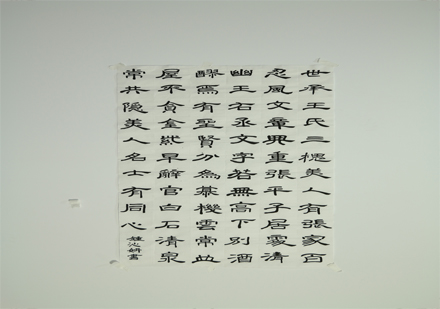 世承王氏三槐美人有張家百
忍風文章典重張平子居處清
幽王右丞文字若無高下別酒
醪焉有聖賢分為慕機雲常並
屋不貪金紫早解官白石清泉
常共隱美人名士有同心
沁妍書